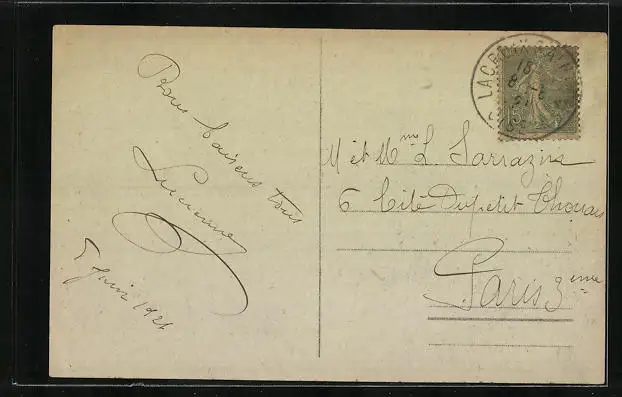 Bons baisers à tous
Lucienne
5 Juin 1921
LACROIX
18
M et Mme L. Sarrazin
6 Cité Dupetit Thouars
Paris 3eme